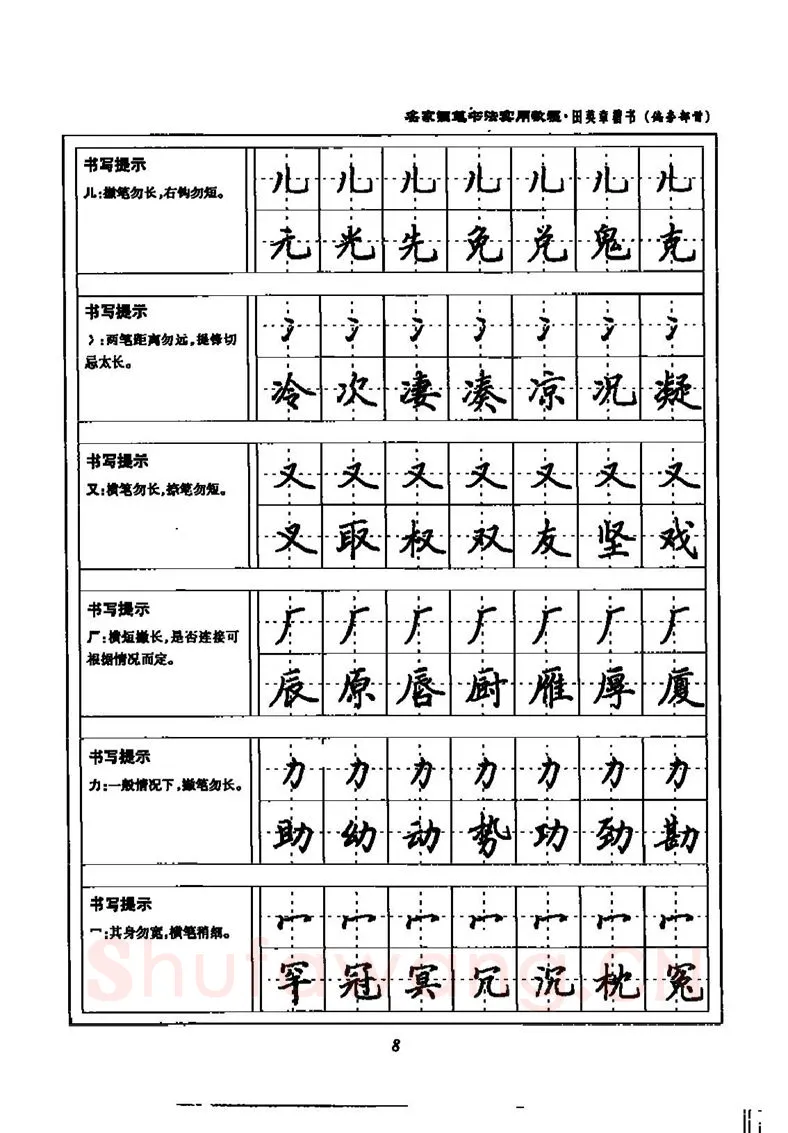 名家钢笔书法实用教程·田英章楷书（偏旁部首）
书写提示
儿:撇笔勿长,右钩勿短。
儿 儿 儿 儿 儿 儿 儿
元 光 先 免 兑 鬼 克
书写提示
冫:两笔距离勿远,提锋切
忌太长。
冫 冫 冫 冫 冫 冫 冫
冷 次 凄 凑 凉 况 凝
书写提示
又:横笔勿长,捺笔勿短。
又 又 又 又 又 又 又
叉 取 权 双 友 坚 戏
书写提示
厂:横短撇长,是否连接可
根据情况而定。
厂 厂 厂 厂 厂 厂 厂
辰 原 唇 厨 雁 厚 厦
书写提示
力:一般情况下,撇笔勿长。
力 力 力 力 力 力 力
助 幼 动 势 功 劲 勘
书写提示
冖:其身勿宽,横笔稍细。
冖 冖 冖 冖 冖 冖 冖
罕 冠 冥 冗 沉 枕 冤
Shufawang.CN
8